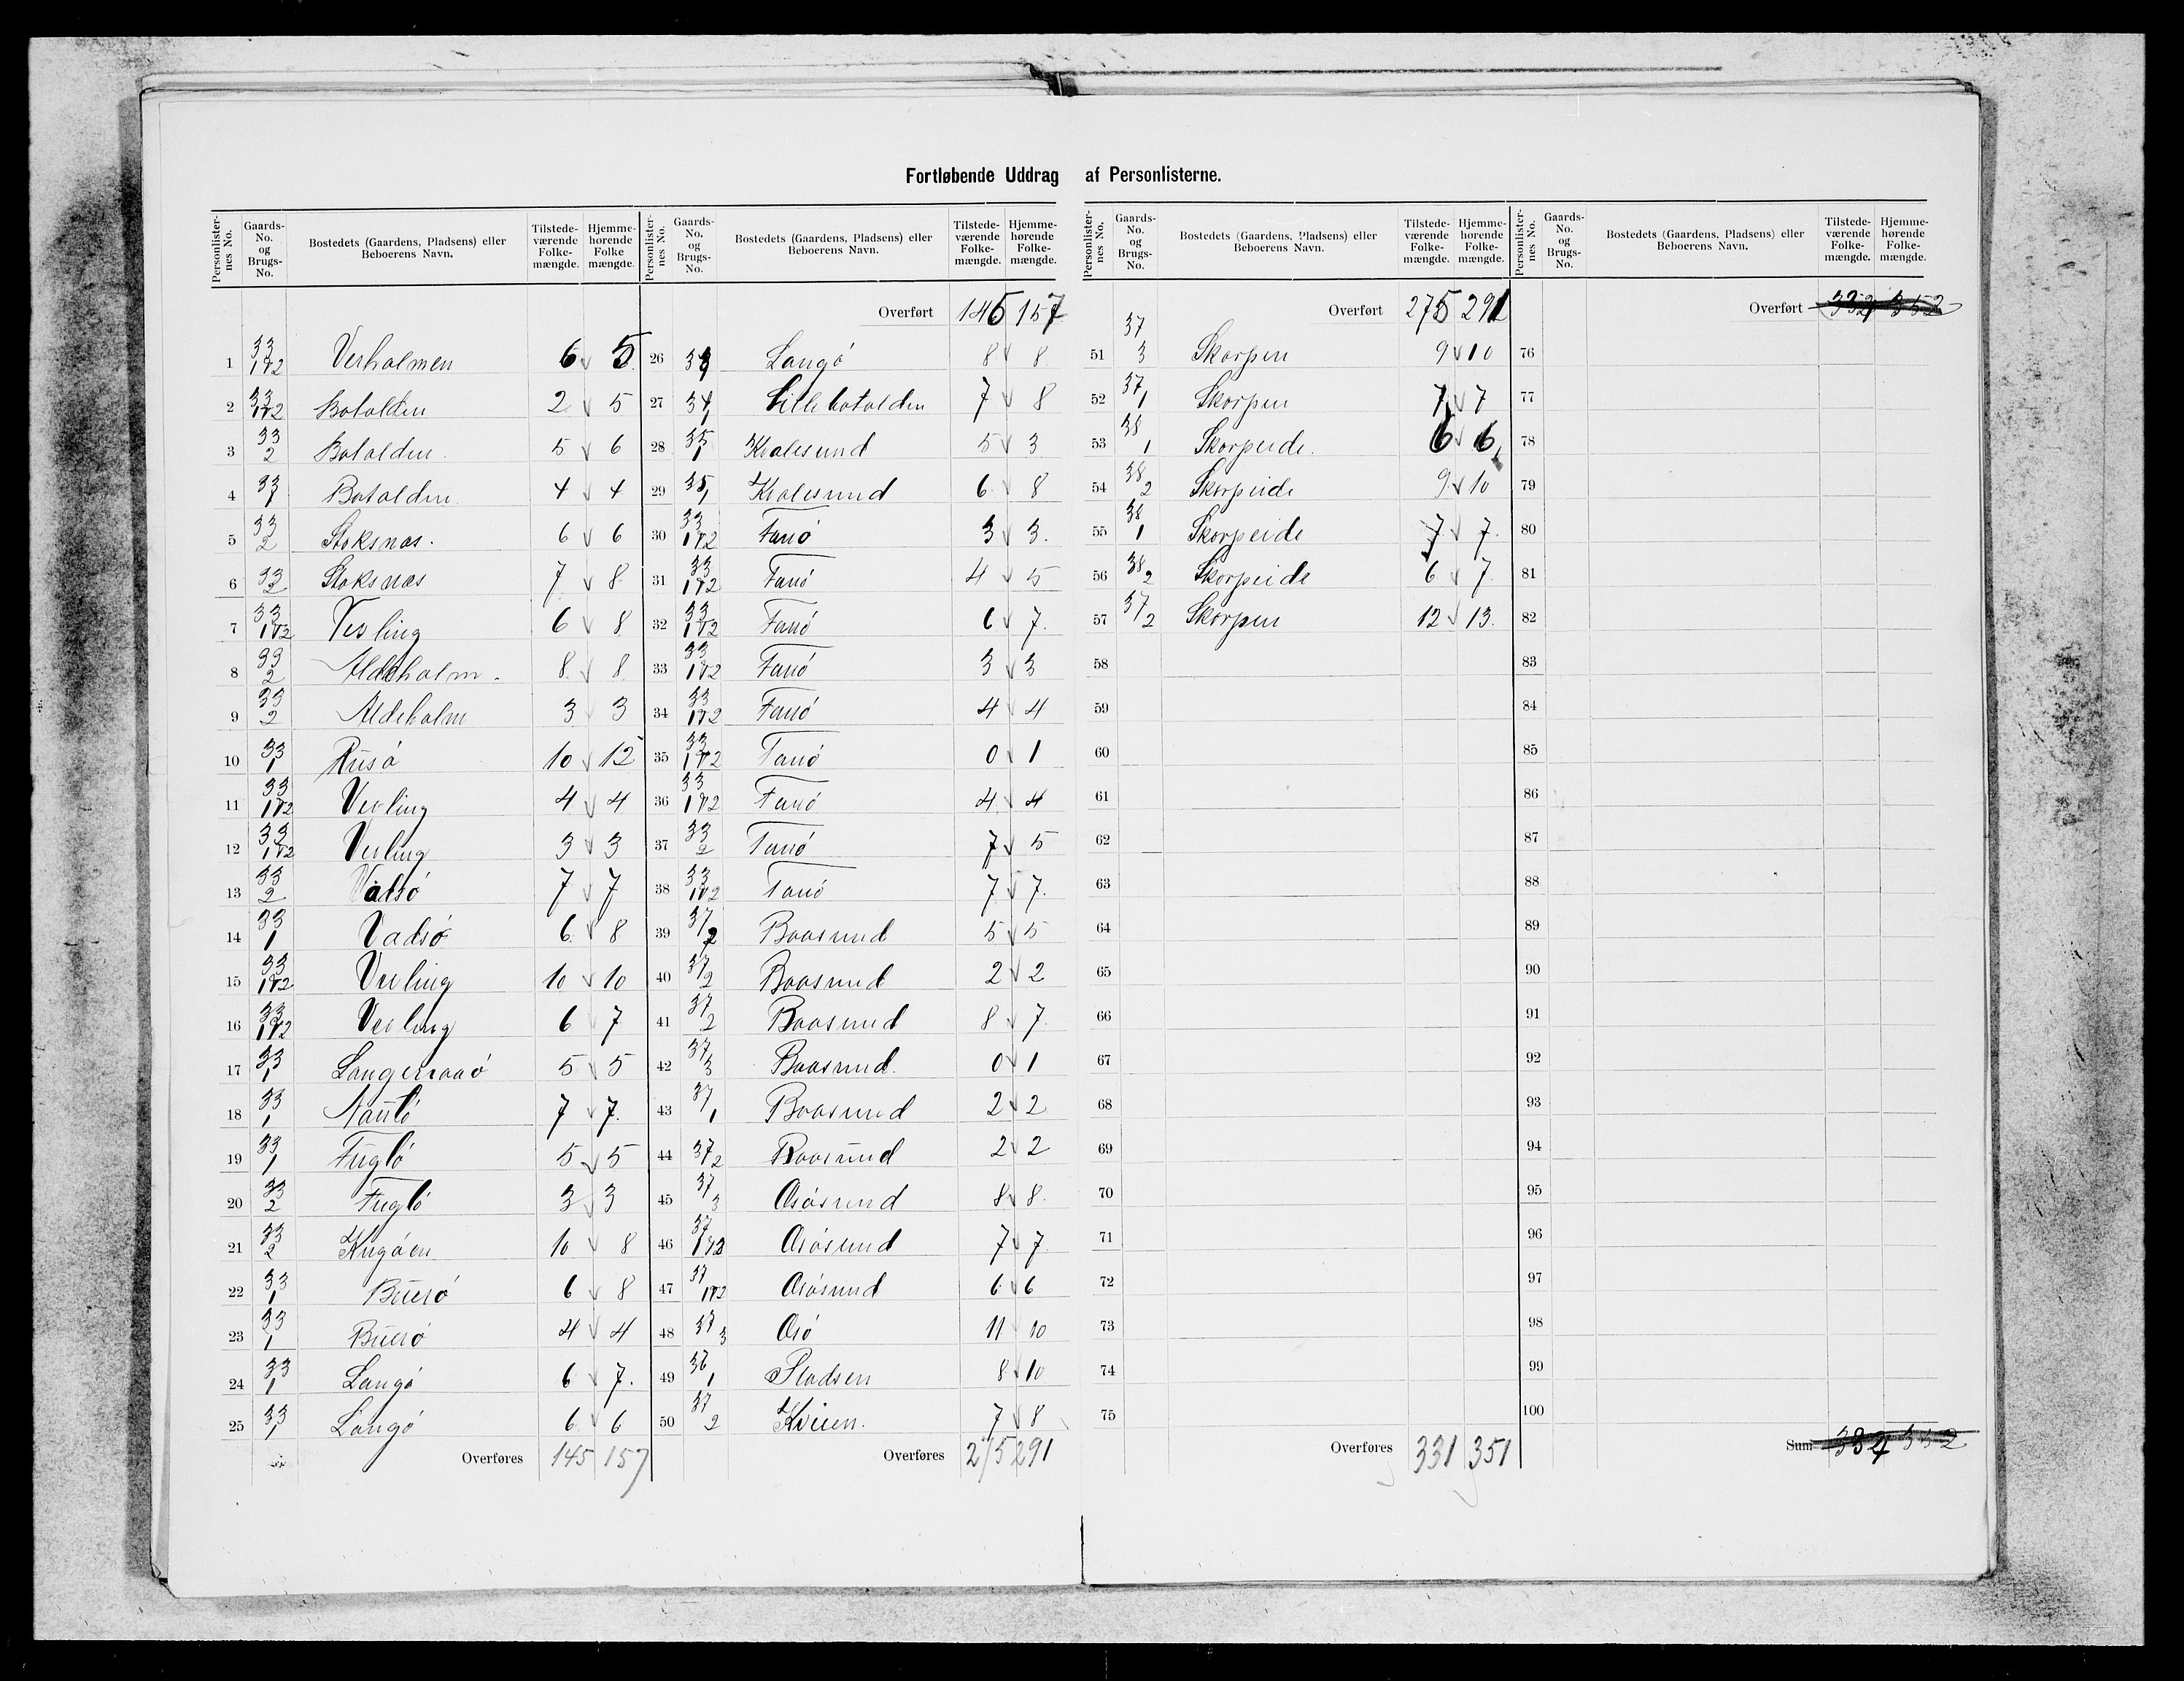 Fortløbende Uddrag af Personlisterne.
Personlisternes No. Gaards-No. og Brugs-No. Bostedets (Gaardens, Pladsens) eller Beboerens Navn. Tilstedeværende Folkemængde. Hjemmehørende Folkemængde.
1 33 1 & 2 Verholmen 6 5
2 33 1 & 2 Botolden 2 5
3 33 2 Botolden 5 6
4 33 1 Botolden 4 4
5 33 2 Stoksnæs 6 6
6 33 2 Stoksnæs 7 8
7 33 1 & 2 Vesling 6 8
8 33 2 Aldeholm 8 8
9 33 2 Aldeholm 3 3
10 33 1 Rusø 10 12
11 33 1 & 2 Verling 4 4
12 33 1 & 2 Verling 3 3
13 33 2 Vadsø 7 7
14 33 1 Vadsø 6 8
15 33 1 & 2 Verling 10 10
16 33 1 & 2 Verling 6 7
17 33 1 5 5
18 33 1 7 7
19 33 1 Fuglø 5 5
20 33 2 Fuglø 3 3
21 33 2 10 8
22 33 1 Buerø 6 8
23 33 1 Buerø 4 4
24 33 1 Langø 6 7
25 33 1 Langø 6 6
Overføres 145 157
Overført 145 157
26 Langø 8 8
27 34 1 Lillebotolden 7 8
28 35 1 Kvalesund 5 3
29 35 1 Kvalesund 6 8
30 33 1 & 2 Fanø 3 3
31 33 1 & 2 Fanø 4 5
32 33 1 & 2 Fanø 6 7
33 33 1 & 2 Fanø 3 3
34 33 1 & 2 Fanø 4 4
35 33 1 & 2 Fanø 0 1
36 33 1 & 2 Fanø 4 4
37 33 2 Fanø 7 5
38 33 1 & 2 Fanø 7 7
39 37 2 Baasund 5 5
40 37 2 Baasund 2 2
41 37 2 Baasund 8 7
42 37 3 Baasund 0 1
43 37 1 Baasund 2 2
44 37 2 Baasund 2 2
45 37 3 Osøsund 8 8
46 37 1 & 2 Osøsund 7 7
47 37 1 & 2 Osøsund 6 6
48 37 3 Osø 11 10
49 36 1 Pladsen 8 10
50 37 2 Kvien 7 8
Overføres 275 291
Overført 275 291
51 37 3 Skorpen 9 10
52 37 1 Skorpen 7 7
53 38 1 Skorpeide 6 6
54 38 2 Skorpeide 9 10
55 38 1 Skorpeide 7 7
56 38 2 Skorpeide 6 7
57 37 2 Skorpen 12 13
58
59
60
61
62
63
64
65
66
67
68
69
70
71
72
73
74
75
Overføres 331 351
Overført 332 352
76
77
78
79
80
81
82
83
84
85
86
87
88
89
90
91
92
93
94
95
96
97
98
99
100
Sum 334 352